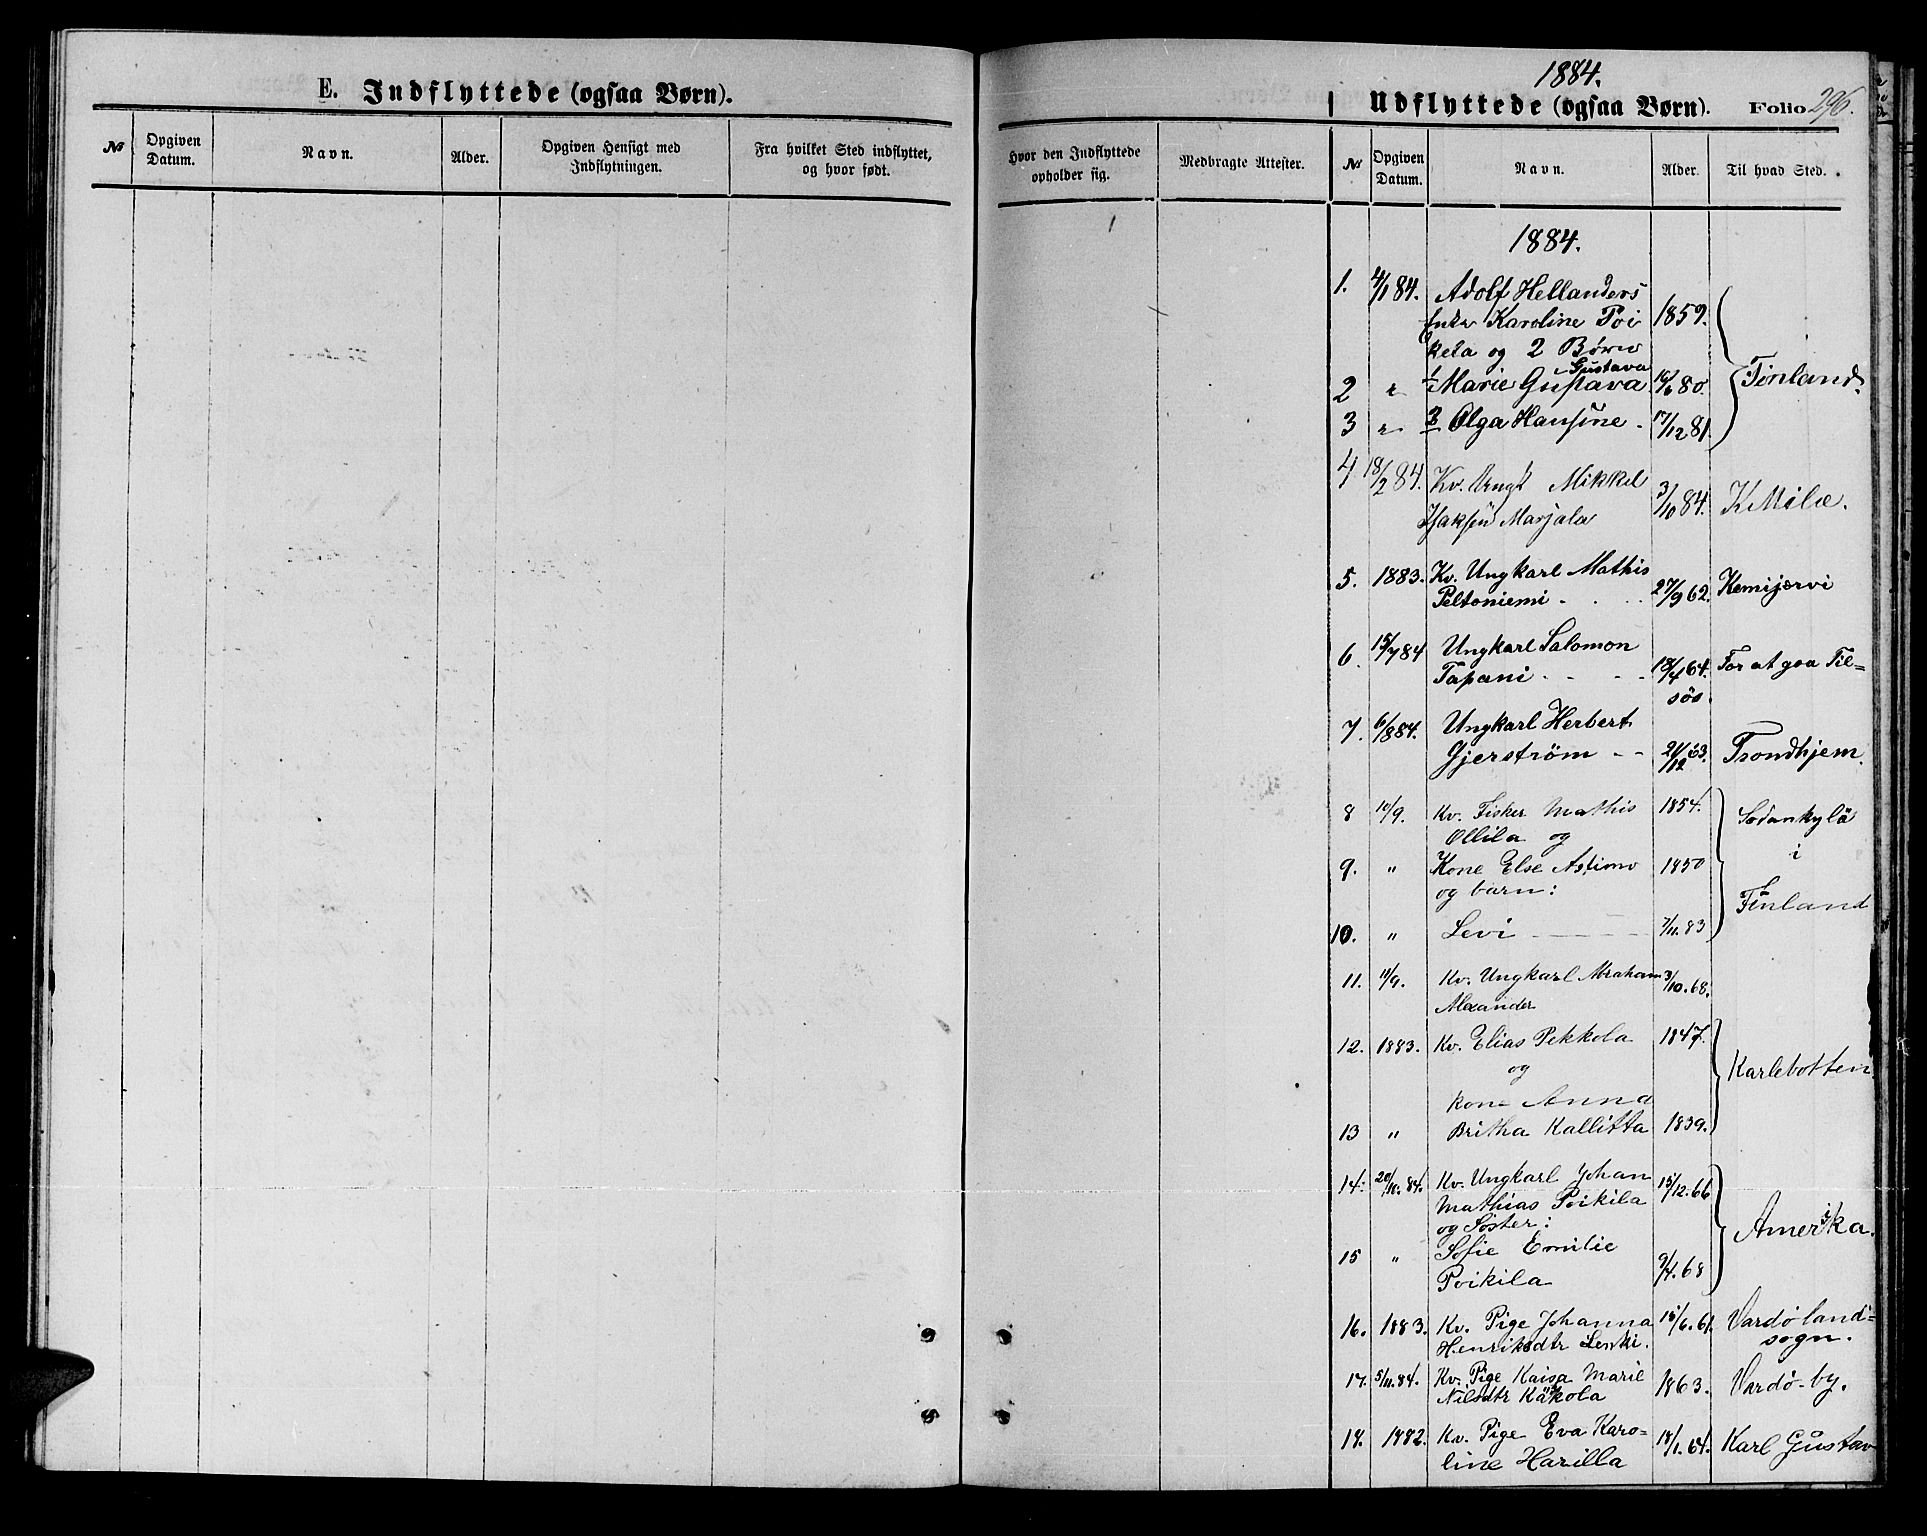 E. Indflyttede (ogsaa Børn).
№ Opgiven Datum. Navn. Alder. Opgiven Hensigt med Indflytningen. Fra hvilket Sted indflyttet, og hvor født.
1884.
Udflyttede (ogsaa Børn). Folio 296.
Hvor den Indflyttede opholder sig. Medbragte Attester. № Opgiven Datum. Navn. Alder. Til hvad Sted.
1884.
1. 4/1 84. Adolf Hellanders
Enke Karoline Poi 1859.
kela og 2 Børn
Gustava
2 " 1 Marie Gustava 16/6 80. Finland.
3 " 2 Olga Hansine - 17/12 81.
4 18/2 84. Kv. Ungk Mikkel
Isaksen Marjala 3/10 84. K Mila.
5. 1883. Kv. Ungkarl Mathis
Peltoniemi - 27/9 62. Kemijærvi
6. 15/7 84 Ungkarl Salomon
Tapani - - - 18/4 64. For at gaa Til=
søs.
7. 6/8 84. Ungkarl Herbert
Gjerström - - 21/12 63. Trondhjem.
8 10/9. Kv. Fisker Mathis 1854. Sodankylä
Ollila og
9. " Kone Else Astimo 1850 i
og barn:
Finland
10. " Levi 7/11. 83
11. 11/9. Kv. Ungkarl Abraham 3/10. 68.
Alexander
12. 1883. Kv. Elias Pekkola 1847.
og Karlebotten
kone Anna
13 " Britha Kallitta 1839.
14. 20/10. 84. Kv. Ungkarl Johan 15/12. 66
Mathias Poikila
og Søster: Amerika.
15 " Sofie Emilie
Poikila 9/4. 68
16. 1883. Kv. Pige Johanna 15/6. 61. Vardø land=
Henriksdtr Lenki. sogn.
17. 5/11. 84. Kv. Pige Kaisa Marie
Nilsdtr Käkola 1863. Vardö-by.
18. 1882. Kv. Pige Eva Karo=
line Harilla 18/1. 64. Karl Gustav